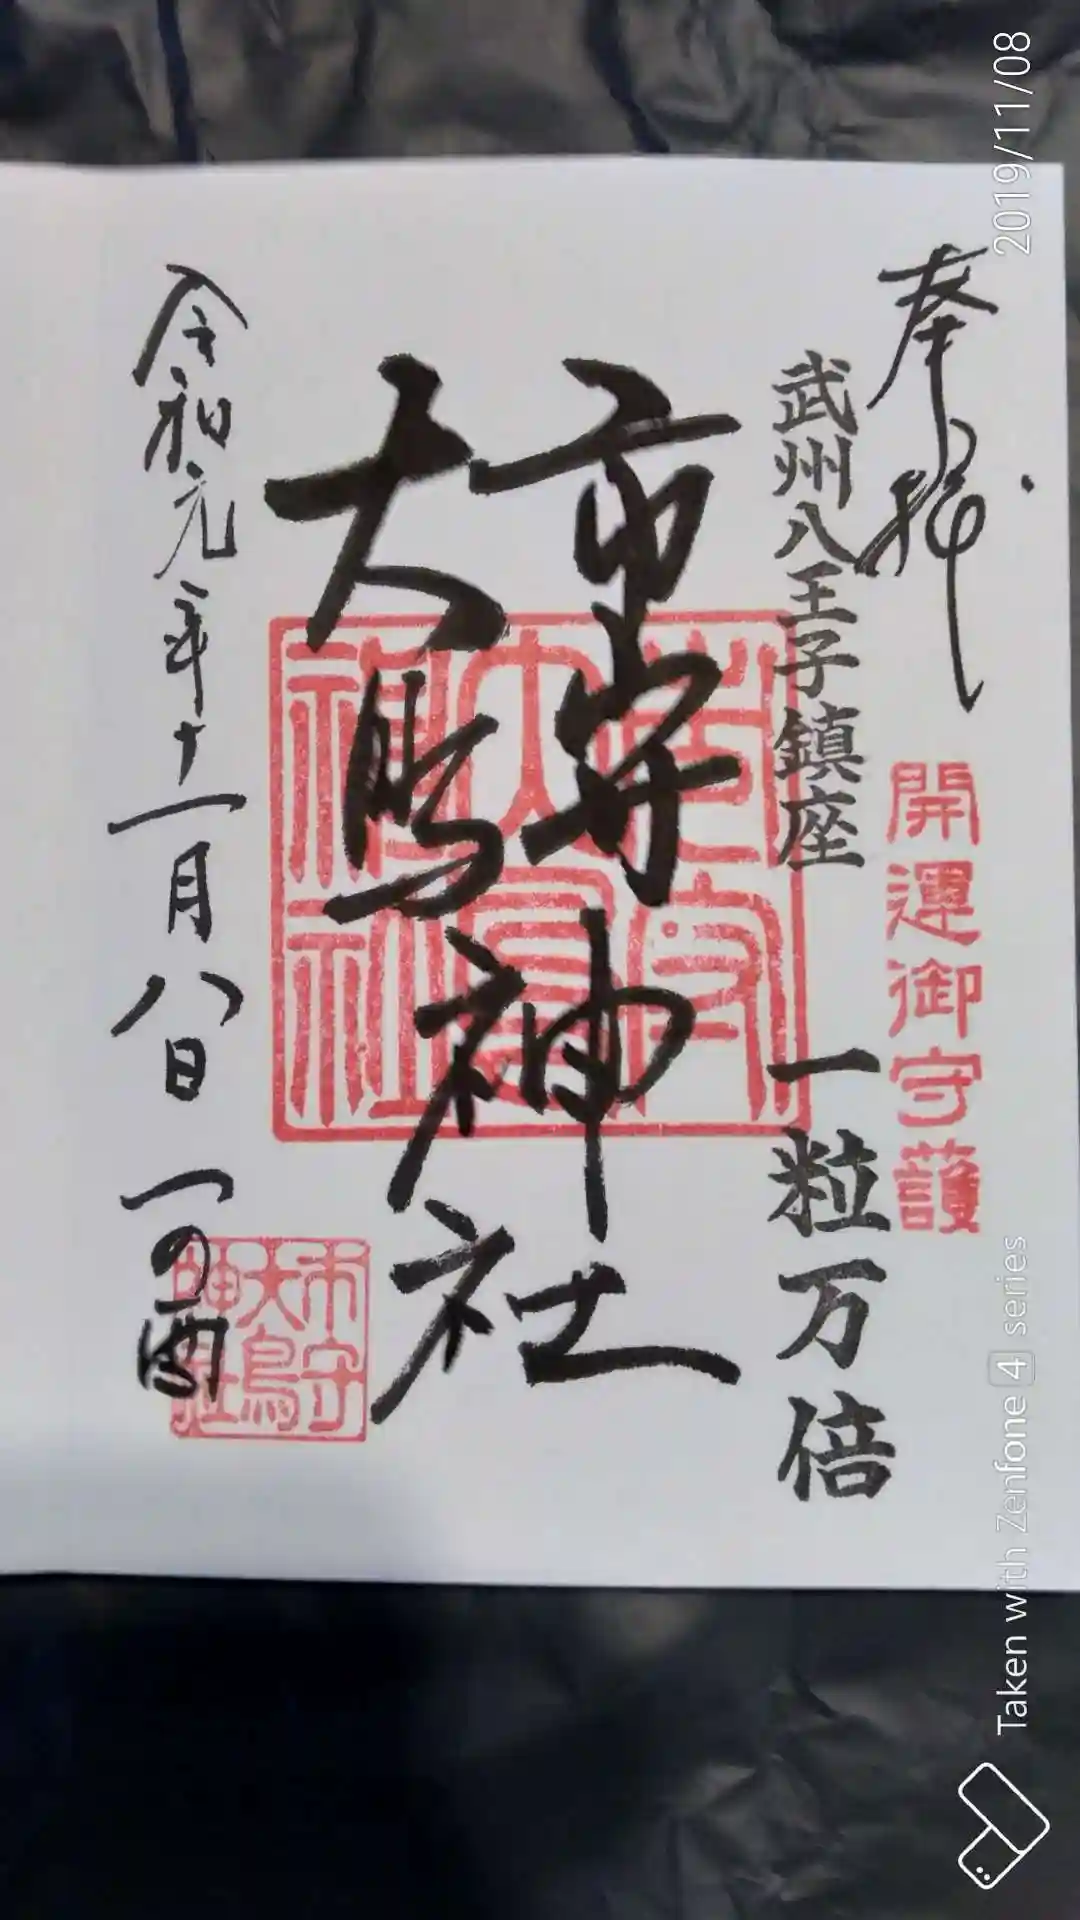 奉拝
開運御守護
武州八王子鎮座 一粒万倍
市守
大鳥
神社
令和元年十一月八日 一の酉
市守大鳥神社
市守大鳥神社
2019/11/08
Taken with Zenfone 4 series